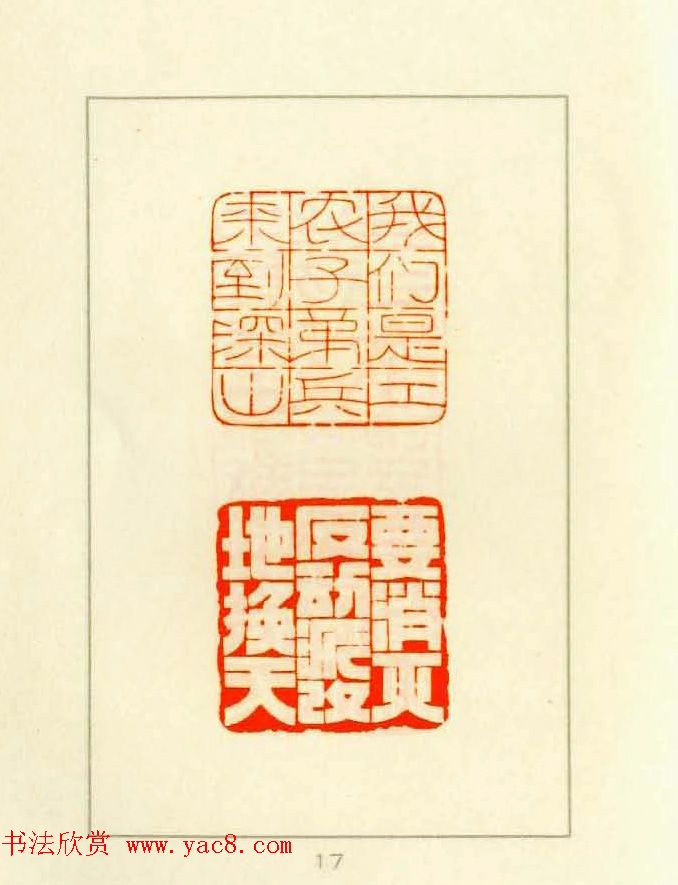 我们是工
农子弟兵
来到深山
要消灭
反动派改
地换天
书法欣赏 www.yac8.com
17